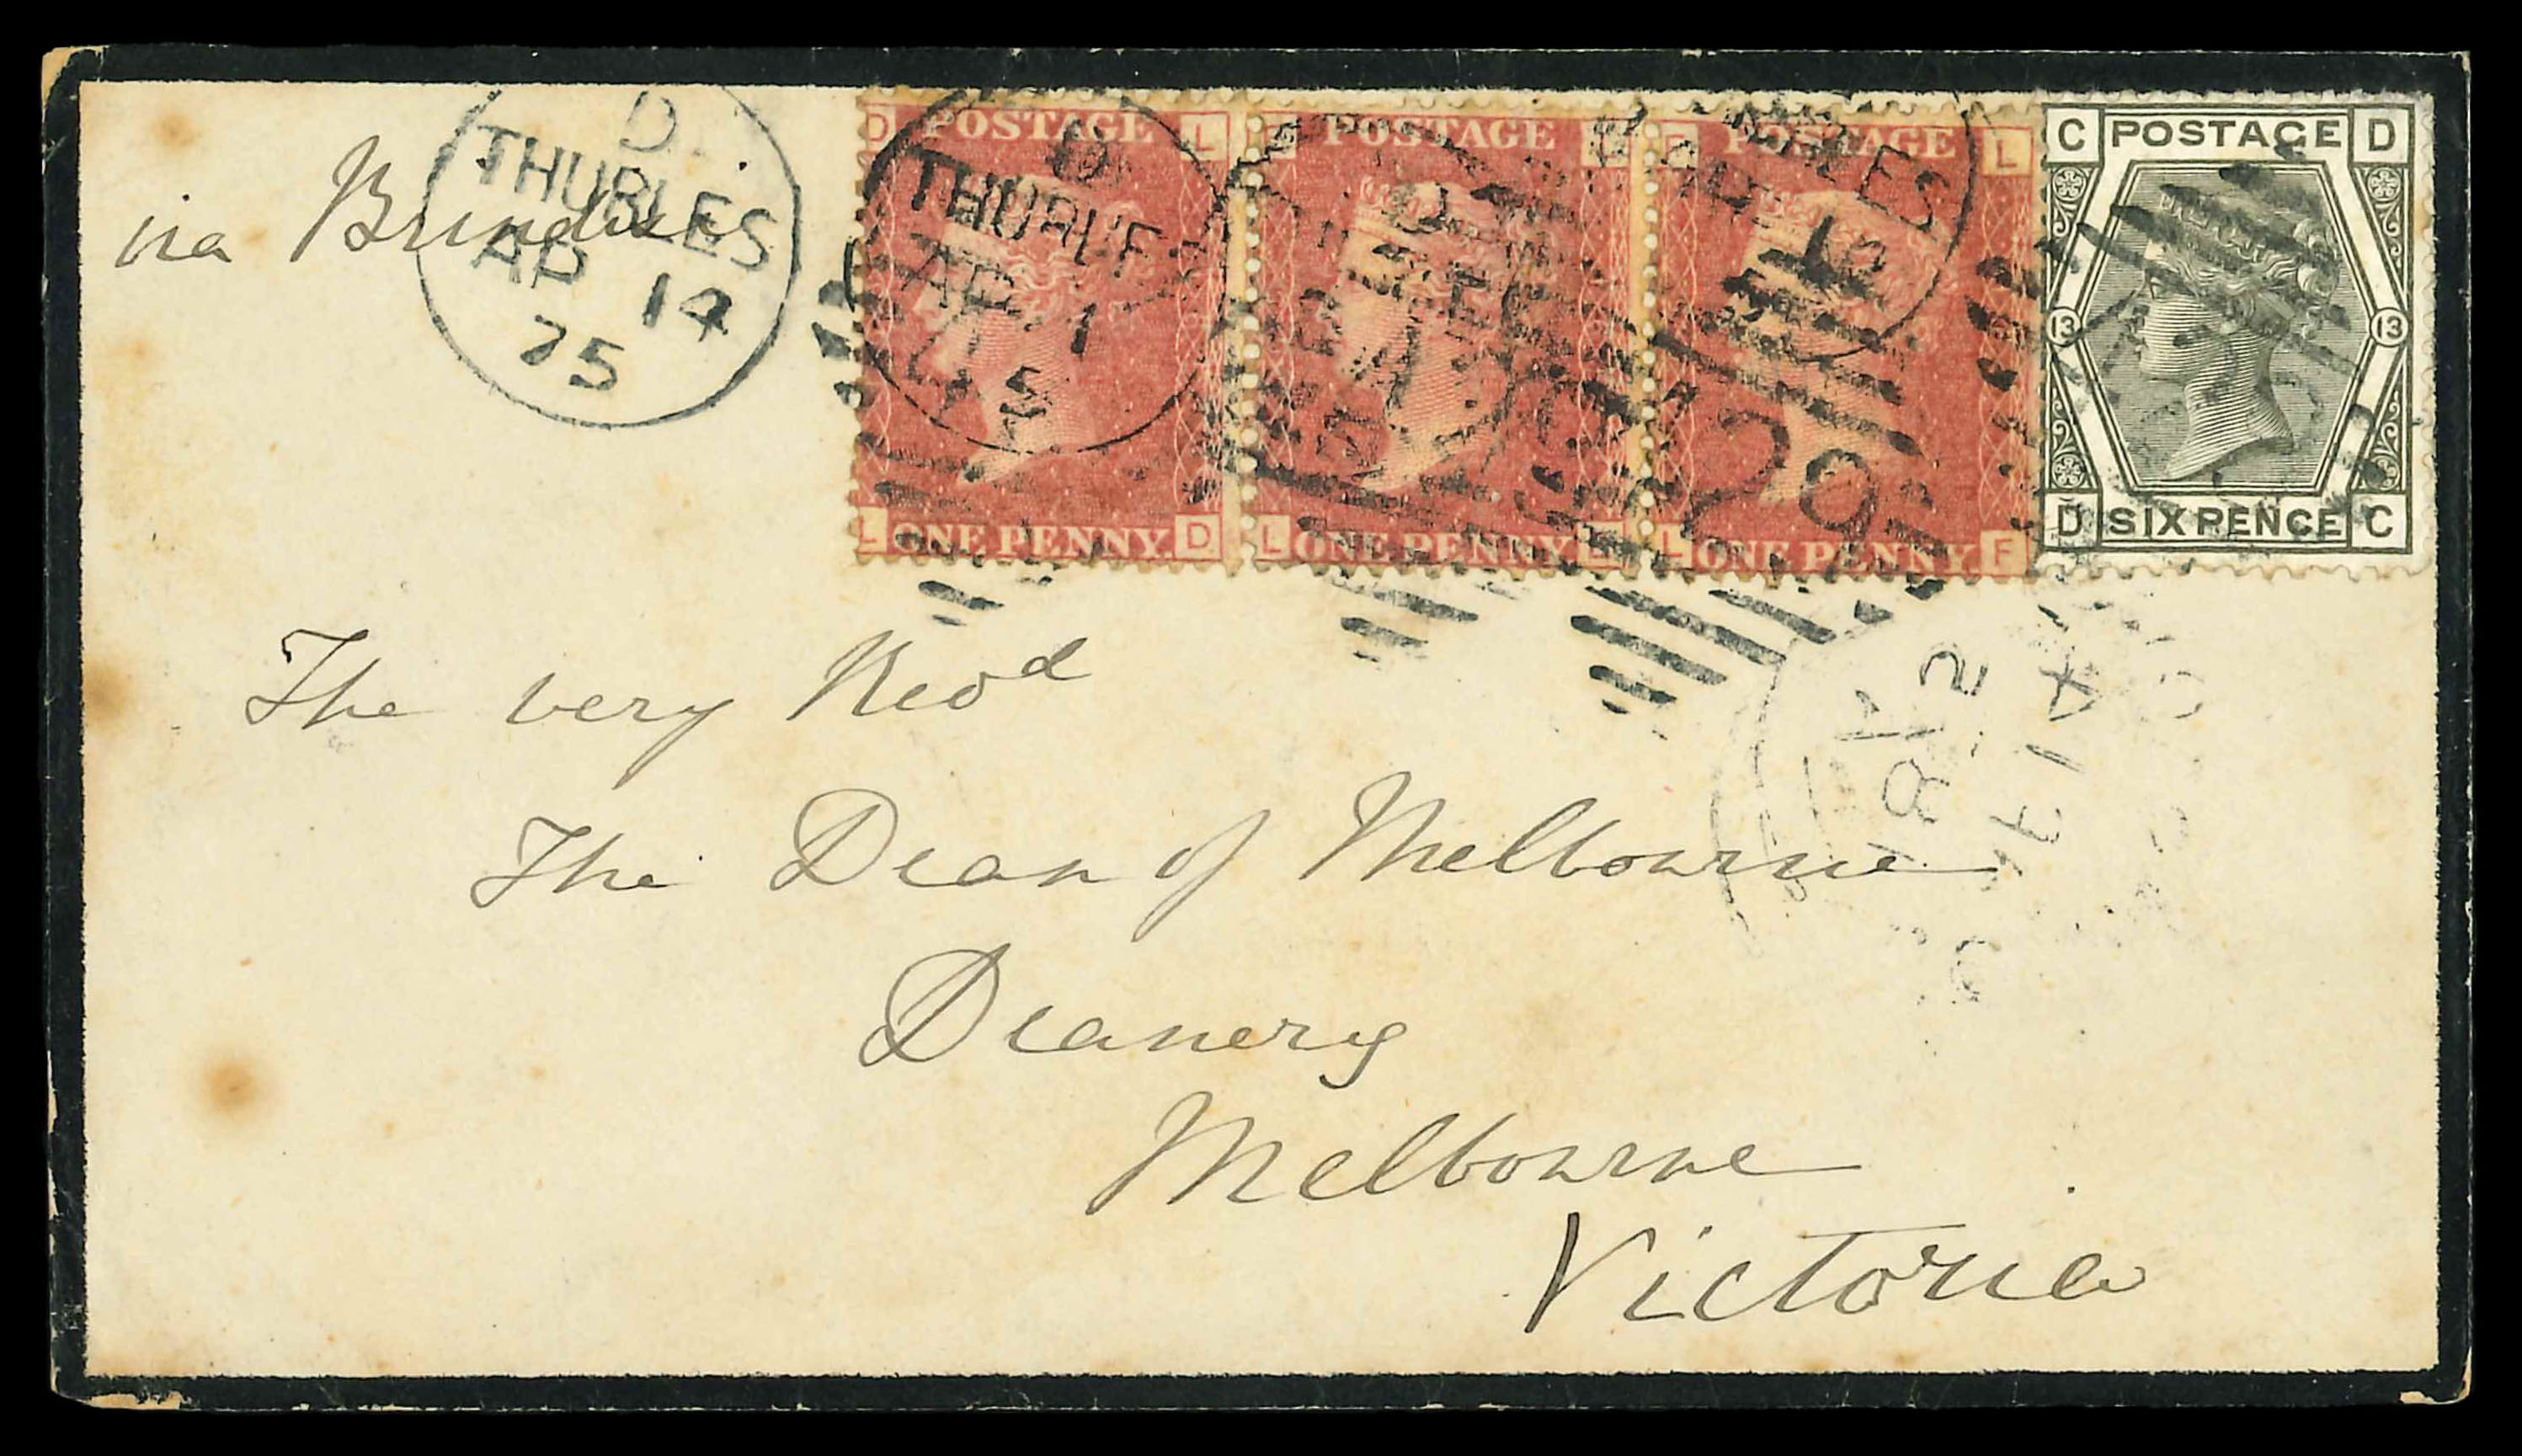 via Brindisi
D
THURLES
AP 14
75
D POSTAGE L
L ONE PENNY. D
D
THURLES
AP 1
POSTAGE
L ONE PENNY
POSTAGE L
L ONE PENNY. F
29
C POSTAGE D
13 13
D SIX PENCE C
The very Revd
The Dean of Melbourne
Deanery
Melbourne
Victoria